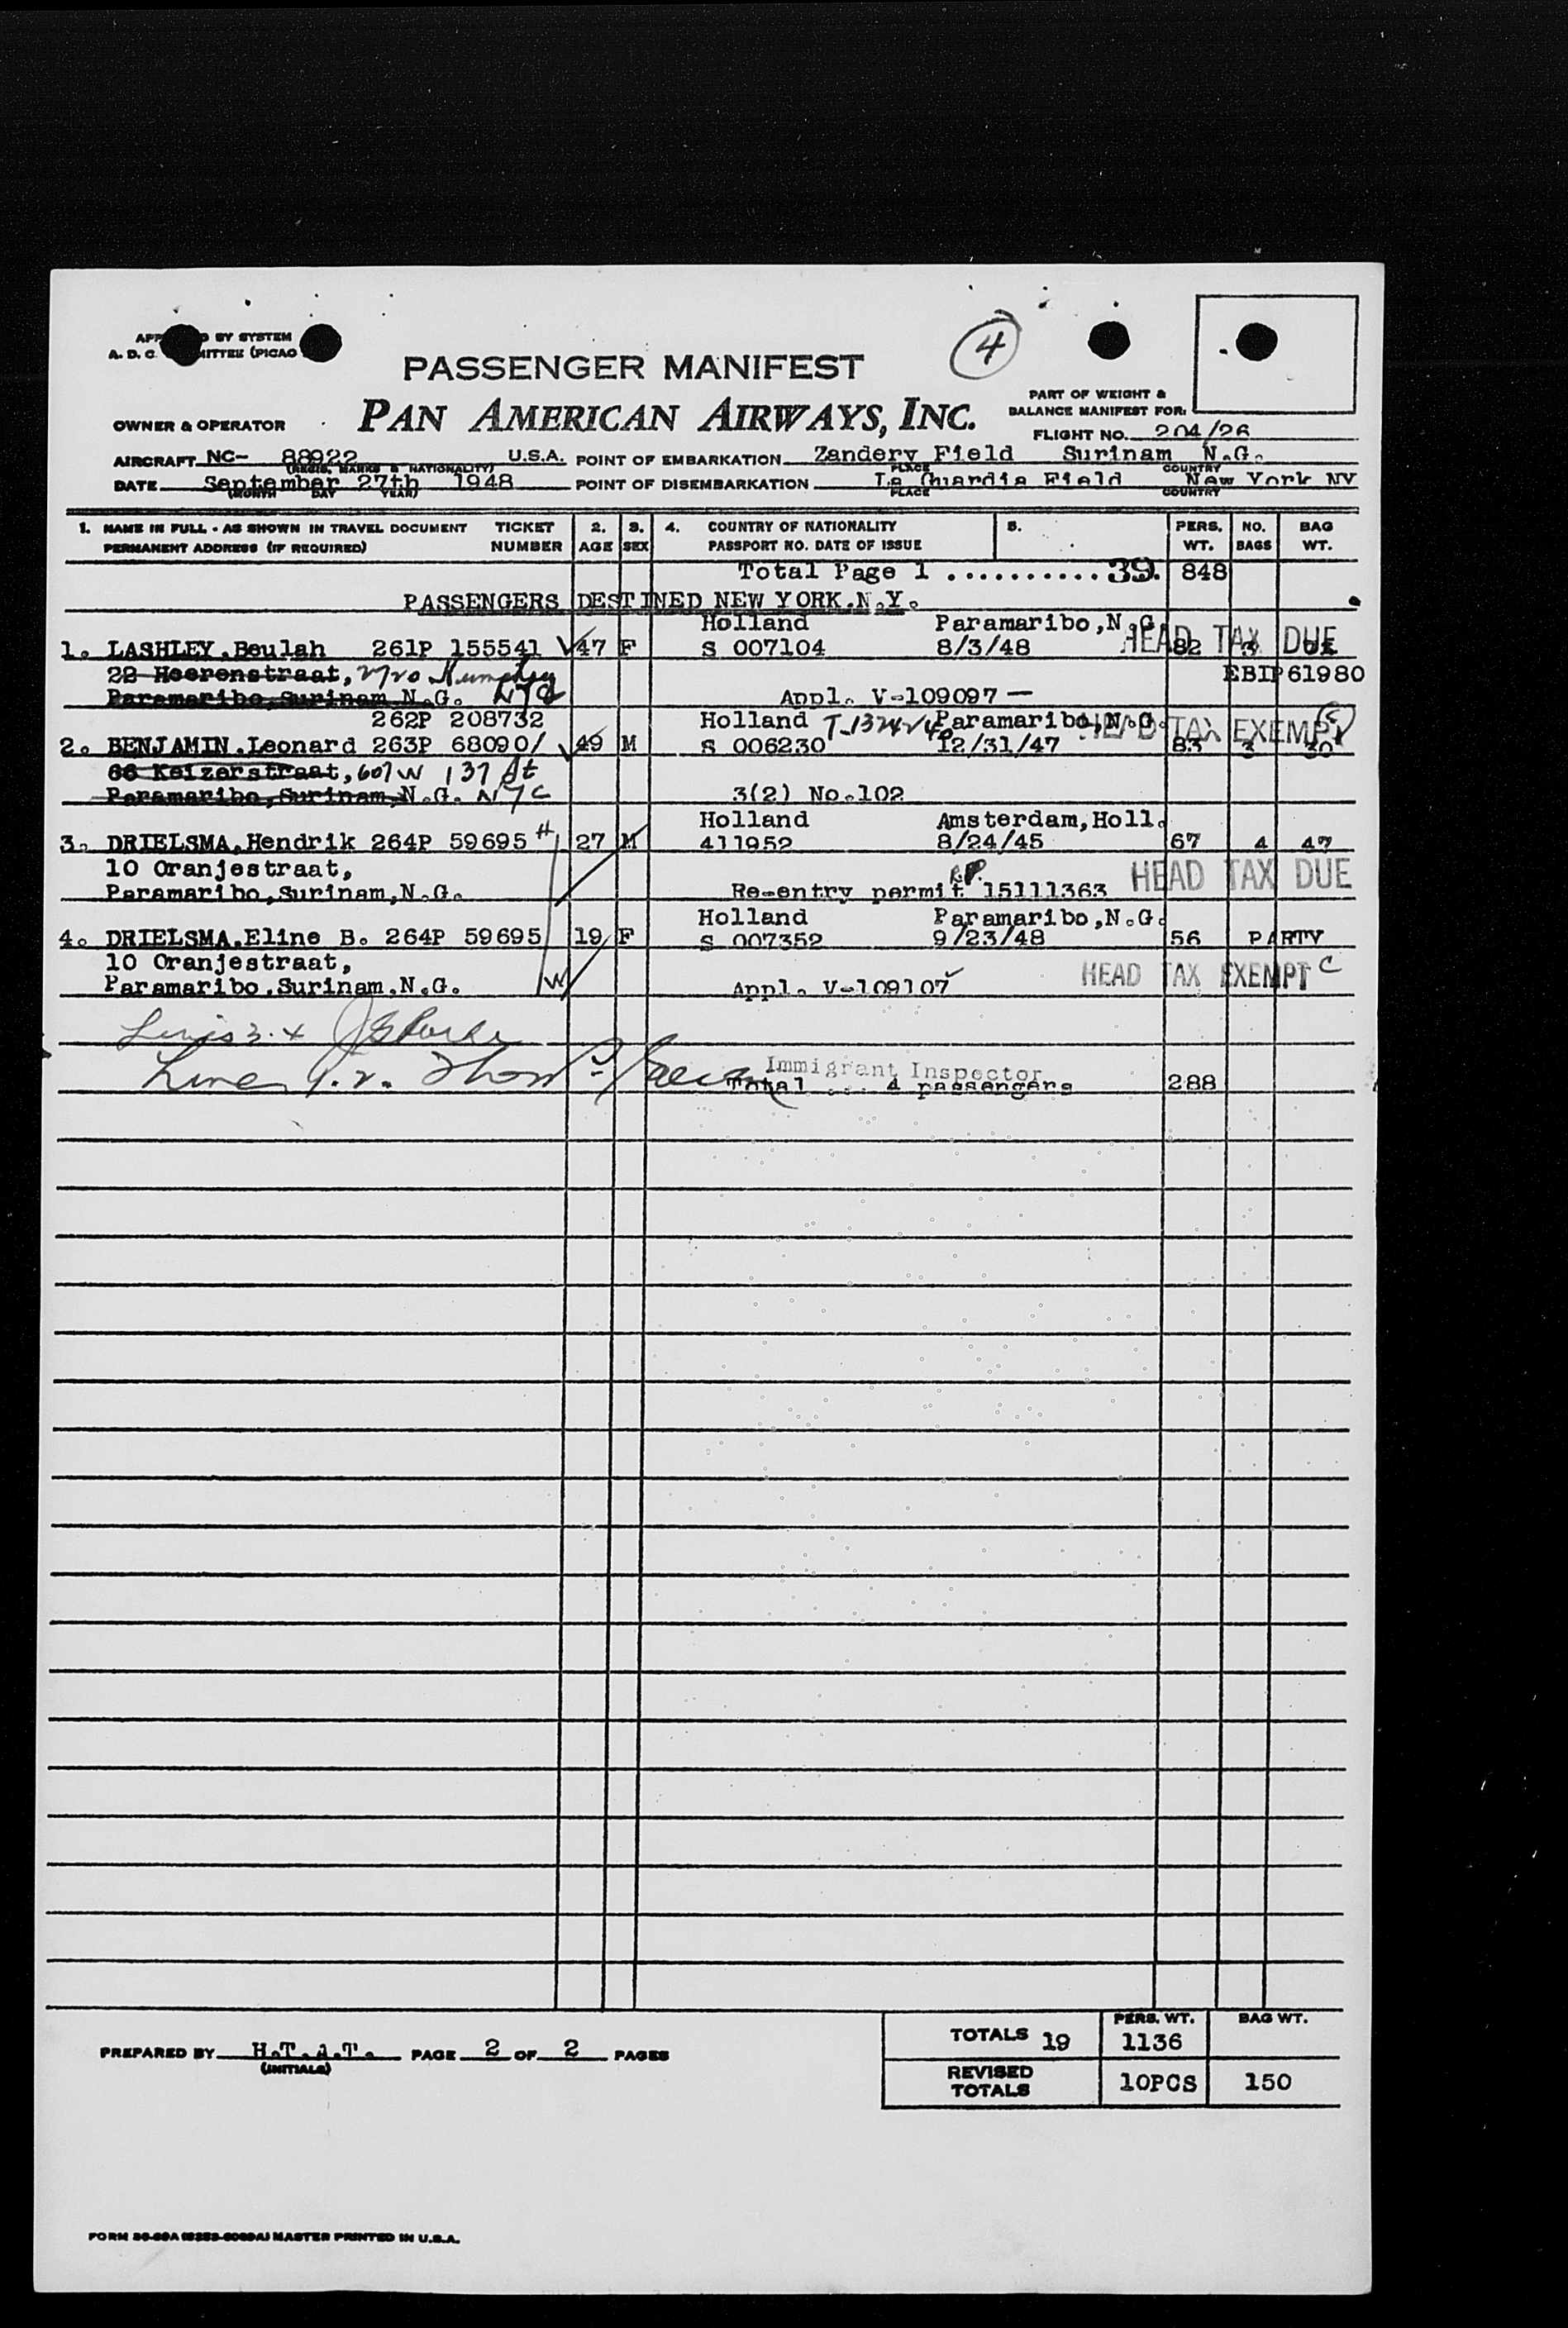 BY SYSTEM
A. D. C. (PICAO
4
PASSENGER MANIFEST
PAN AMERICAN AIRWAYS, INC.
PART OF WEIGHT &
BALANCE MANIFEST FOR:
OWNER & OPERATOR
FLIGHT NO. 204/26
AIRCRAFT NC- 88922 U.S.A. POINT OF EMBARKATION Zandery Field Surinam N.G.
(REGIS. MARKS & NATIONALITY) PLACE COUNTRY
DATE September 27th 1948 POINT OF DISEMBARKATION La Guardia Field New York NY
(MONTH DAY YEAR) PLACE COUNTRY
1. NAME IN FULL - AS SHOWN IN TRAVEL DOCUMENT TICKET 2. 3. 4. COUNTRY OF NATIONALITY 5. PERS. NO. BAG
PERMANENT ADDRESS (IF REQUIRED) NUMBER AGE SEX PASSPORT NO. DATE OF ISSUE WT. BAGS WT.
Total Page 1 .......... 39. 848
PASSENGERS DESTINED NEW YORK.N.Y.
Holland Paramaribo,N.G.
1. LASHLEY.Beulah 261P 155541 47 F S 007104 8/3/48 HEAD TAX DUE 82 3
22 Heerenstraat, EBIP61980
Paramaribo,Surinam,N.G. NYC Appl. V-109097 —
262P 208732 Holland Paramaribo,N.G. HEAD TAX EXEMPT
2. BENJAMIN.Leonard 263P 68090/ 49 M S 006230 12/31/47 83 3 30
66 Keizerstraat, 607 W 137 St
Paramaribo,Surinam,N.G. NYC 3(2) No.102
Holland Amsterdam,Holl.
3. DRIELSMA.Hendrik 264P 59695 H 27 M 411952 8/24/45 67 4 47
10 Oranjestraat, R.P. HEAD TAX DUE
Paramaribo,Surinam,N.G. Re-entry permit 15111363
Holland Paramaribo,N.G.
4. DRIELSMA.Eline B. 264P 59695 19 F S 007352 9/23/48 56 PARTY
10 Oranjestraat, HEAD TAX EXEMPT C
Paramaribo.Surinam.N.G. W Appl. V-109107
Immigrant Inspector
Total .... 4 passengers 288
PERS. WT. BAG WT.
TOTALS 19 1136
PREPARED BY H.T.A.T. PAGE 2 OF 2 PAGES
(INITIALS)
REVISED TOTALS 10PCS 150
MASTER PRINTED IN U.S.A.